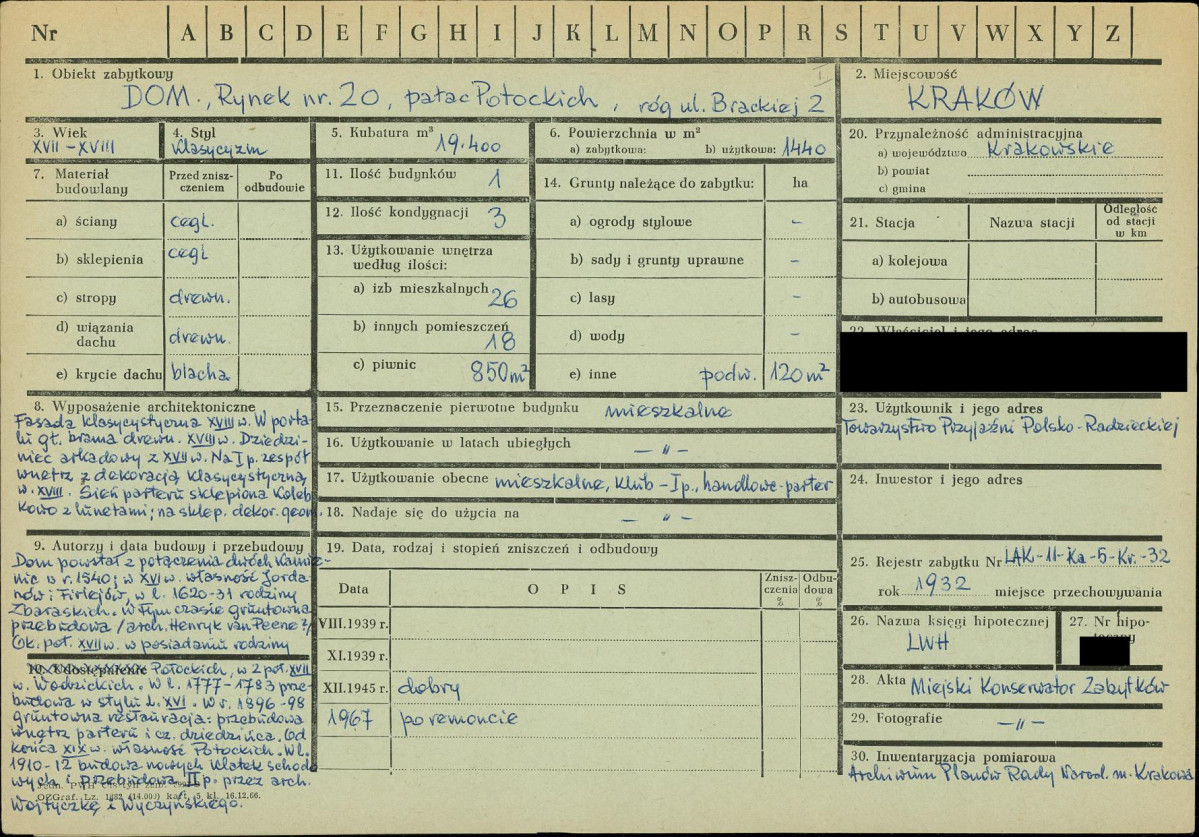 Nr A B C D E F G H I J K L M N O P R S T U V W X Y Z
1. Obiekt zabytkowy
DOM., Rynek nr. 20, pałac Potockich, róg ul. Brackiej 2
I
2. Miejscowość
KRAKÓW
3. Wiek
XVII – XVIII
4. Styl
klasycyzm
5. Kubatura m³
19.400
6. Powierzchnia w m²
a) zabytkowa: b) użytkowa: 1440
20. Przynależność administracyjna
a) województwo Krakowskie
b) powiat
c) gmina
7. Materiał budowlany
Przed zniszczeniem
Po odbudowie
a) ściany cegl.
b) sklepienia cegl
c) stropy drewn.
d) wiązania dachu drewn.
e) krycie dachu blacha
11. Ilość budynków 1
12. Ilość kondygnacji 3
13. Użytkowanie wnętrza
według ilości:
a) izb mieszkalnych 26
b) innych pomieszczeń 18
c) piwnic 850 m²
14. Grunty należące do zabytku: ha
a) ogrody stylowe –
b) sady i grunty uprawne –
c) lasy –
d) wody –
e) inne podw. 120 m²
21. Stacja Nazwa stacji Odległość od stacji w km
a) kolejowa
b) autobusowa
22. Właściciel i jego adres
8. Wyposażenie architektoniczne
Fasada klasycystyczna XVIII w. W porta-
lu gł. brama drewn. XVIII w. Dziedzi-
niec arkadowy z XVII w. Na I p. zespół
wnętrz z dekoracją klasycystyczną
w. XVIII. Sień parteru sklepiona koleb
kowo z lunetami; na sklep. dekor. geom.
15. Przeznaczenie pierwotne budynku mieszkalne
16. Użytkowanie w latach ubiegłych – " –
17. Użytkowanie obecne mieszkalne, klub – I p., handlowe-parter
18. Nadaje się do użycia na – " –
23. Użytkownik i jego adres
Towarzystwo Przyjaźni Polsko-Radzieckiej
24. Inwestor i jego adres
9. Autorzy i data budowy i przebudowy
Dom powstał z połączenia dwóch kamie-
nic w r. 1540; w XVI w. własność Jorda-
nów i Firlejów, w l. 1620-31 rodziny
Zbaraskich. W tym czasie gruntowna
przebudowa /arch. Henryk van Peene ?/
Ok. poł. XVII w. w posiadaniu rodziny
10. Udostępnienie
Potockich, w 2 poł. XVII
w. Wodzickich. W l. 1777-1783 prze-
budowa w stylu L. XVI. W r. 1896-98
gruntowna restauracja: przebudowa
wnętrz parteru i cz. dziedzińca. Od
końca XIX w. własność Potockich. W l.
1910-12 budowa nowych klatek schodo
wych i przebudowa II p. przez arch.
Wojtyczkę i Wyczyńskiego.
OZGraf. Lz. 1882 (14.000) kart. 5 kl. 16.12.66.
19. Data, rodzaj i stopień zniszczeń i odbudowy
Data O P I S Zniszczenia % Odbudowa %
VIII.1939 r.
XI.1939 r.
XII.1945 r. dobry
1967 po remoncie
25. Rejestr zabytku Nr LAK-11-Ka-5-Kr.-32
rok 1932 miejsce przechowywania
26. Nazwa księgi hipotecznej
LWH
27. Nr hipo-
28. Akta Miejski Konserwator Zabytków
29. Fotografie – " –
30. Inwentaryzacja pomiarowa
Archiwum Planów Rady Narod. m. Krakowa